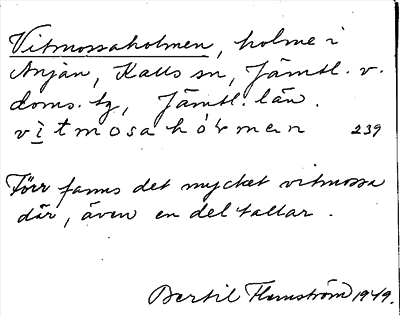 Vitmossaholmen, holme i
Anjan, Kalls sn, Jämtl. v.
doms. tg, Jämtl. län.
vi̲tmosahó̀rmen 239
Förr fanns det mycket vitmossa
där, även en del tallar.
Bertil Flemström 1949.